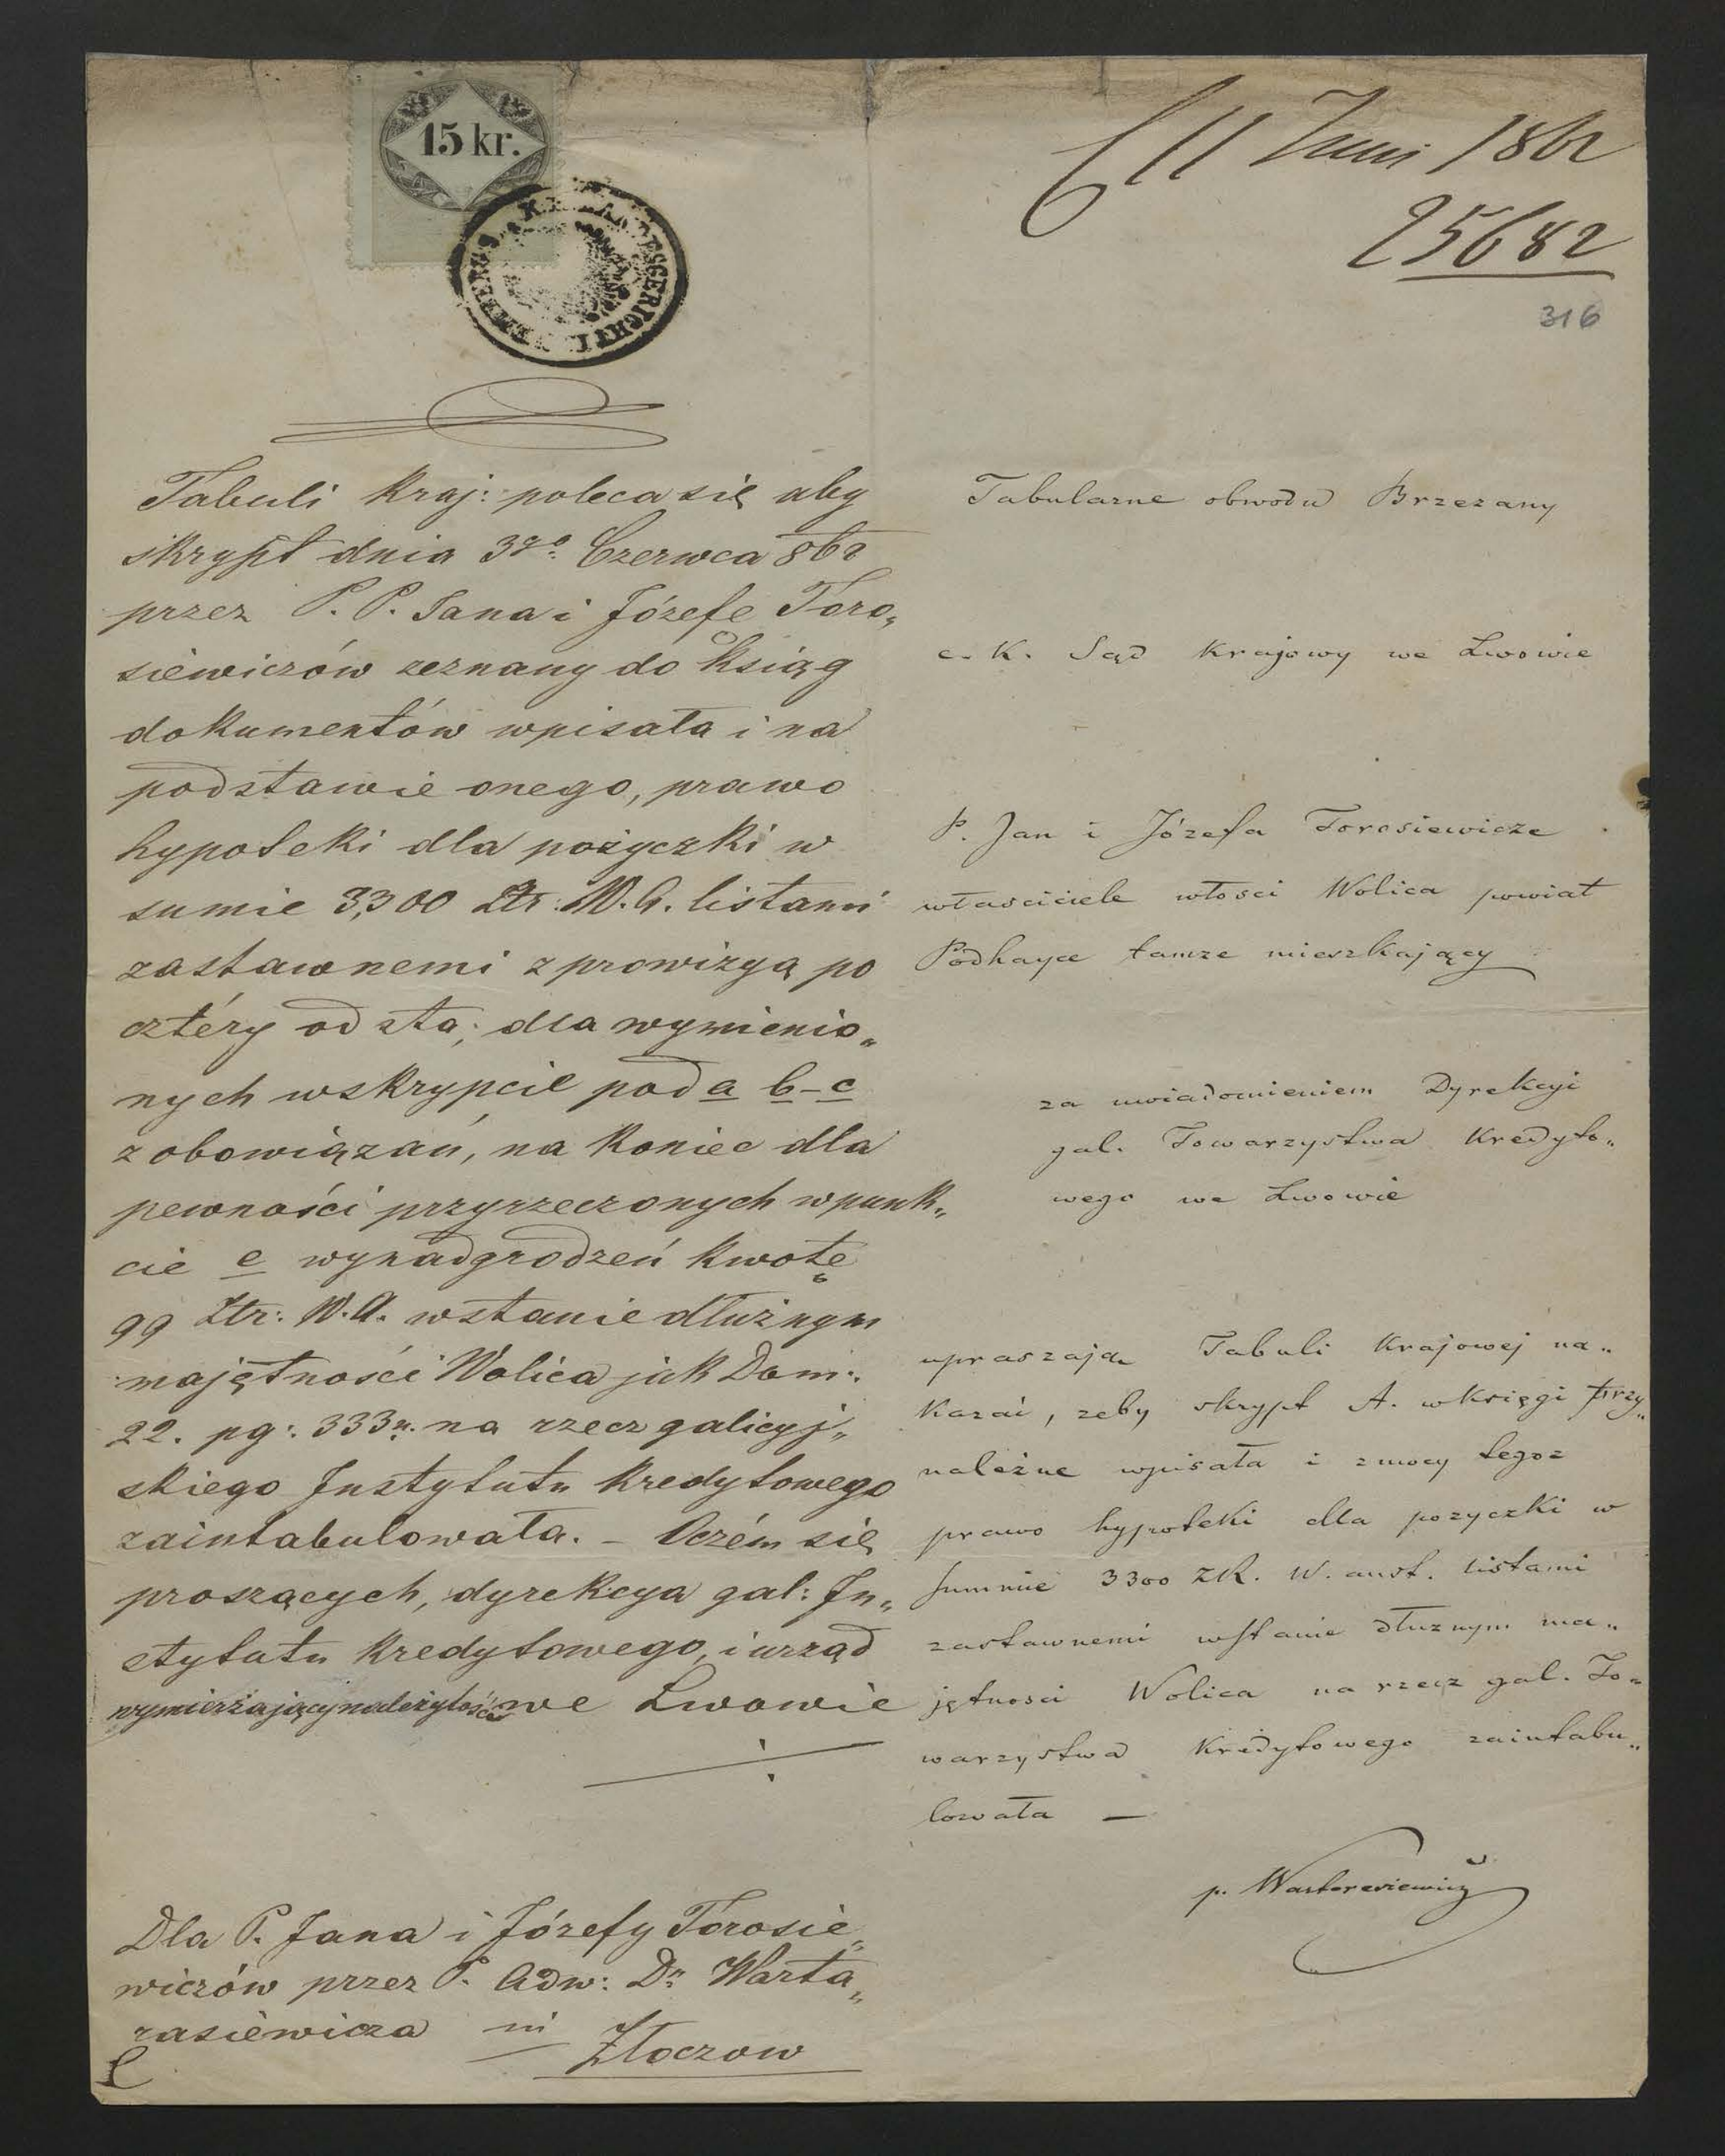 15 kr.
K.K. LANDESGERICHT LEMBERG
11 Juni 1862
25682
316
Tabuli kraj: poleca się aby
skrypt dnia 3go Czerwca 862
przez P. P. Jana i Józefe Toro„
siewiczów zeznany do Ksiąg
dokumentów wpisała i na
podstawie onego, prawo
hypoteki dla pożyczki w
sumie 3,300 Złr: W.A. listami
zastawnemi z prowizyą po
cztéry od sta; dla wymienio„
nych w skrypcie pod a b–c
zobowiązań, na koniec dla
pewności przyrzeczonych w punk„
cie e wynadgrodzeń kwotę
99 Złr: W.A. w stanie dłużnym
majętności Wolica jak Dom:
22. pg: 333 n. na rzecz galicyj„
skiego Instytutu kredytowego
zaintabulowała. – Oczém się
proszących, dyrekcya gal: In„
stytutu kredytowego, i urząd
wymierzający należytości we Lwowie
Dla P. Jana i Józefy Torosie„
wiczów przez P. Adw: Dr Warta„
rasiewicza in
Złoczow
Tabularne obwodu Brzezany
c. K. Sąd Krajowy we Lwowie
P. Jan i Józefa Torosiewicze
własciciele włosci Wolica powiat
Podhayce tamze mieszkający
za uwiadomieniem Dyrekcyi
gal. Towarzystwa Kredyto„
wego we Lwowie
upraszają Tabuli Krajowej na„
kazać, zeby skrypt A. w księgi przy„
należne wpisała i z mocy tegoz
prawo hypoteki dla pozyczki w
summie 3300 ZR. W. aust. listami
zastawnemi w stanie dłuznym ma„
jętnosci Wolica na rzecz gal. To„
warzystwa Kredytowego zaintabu„
lowała —